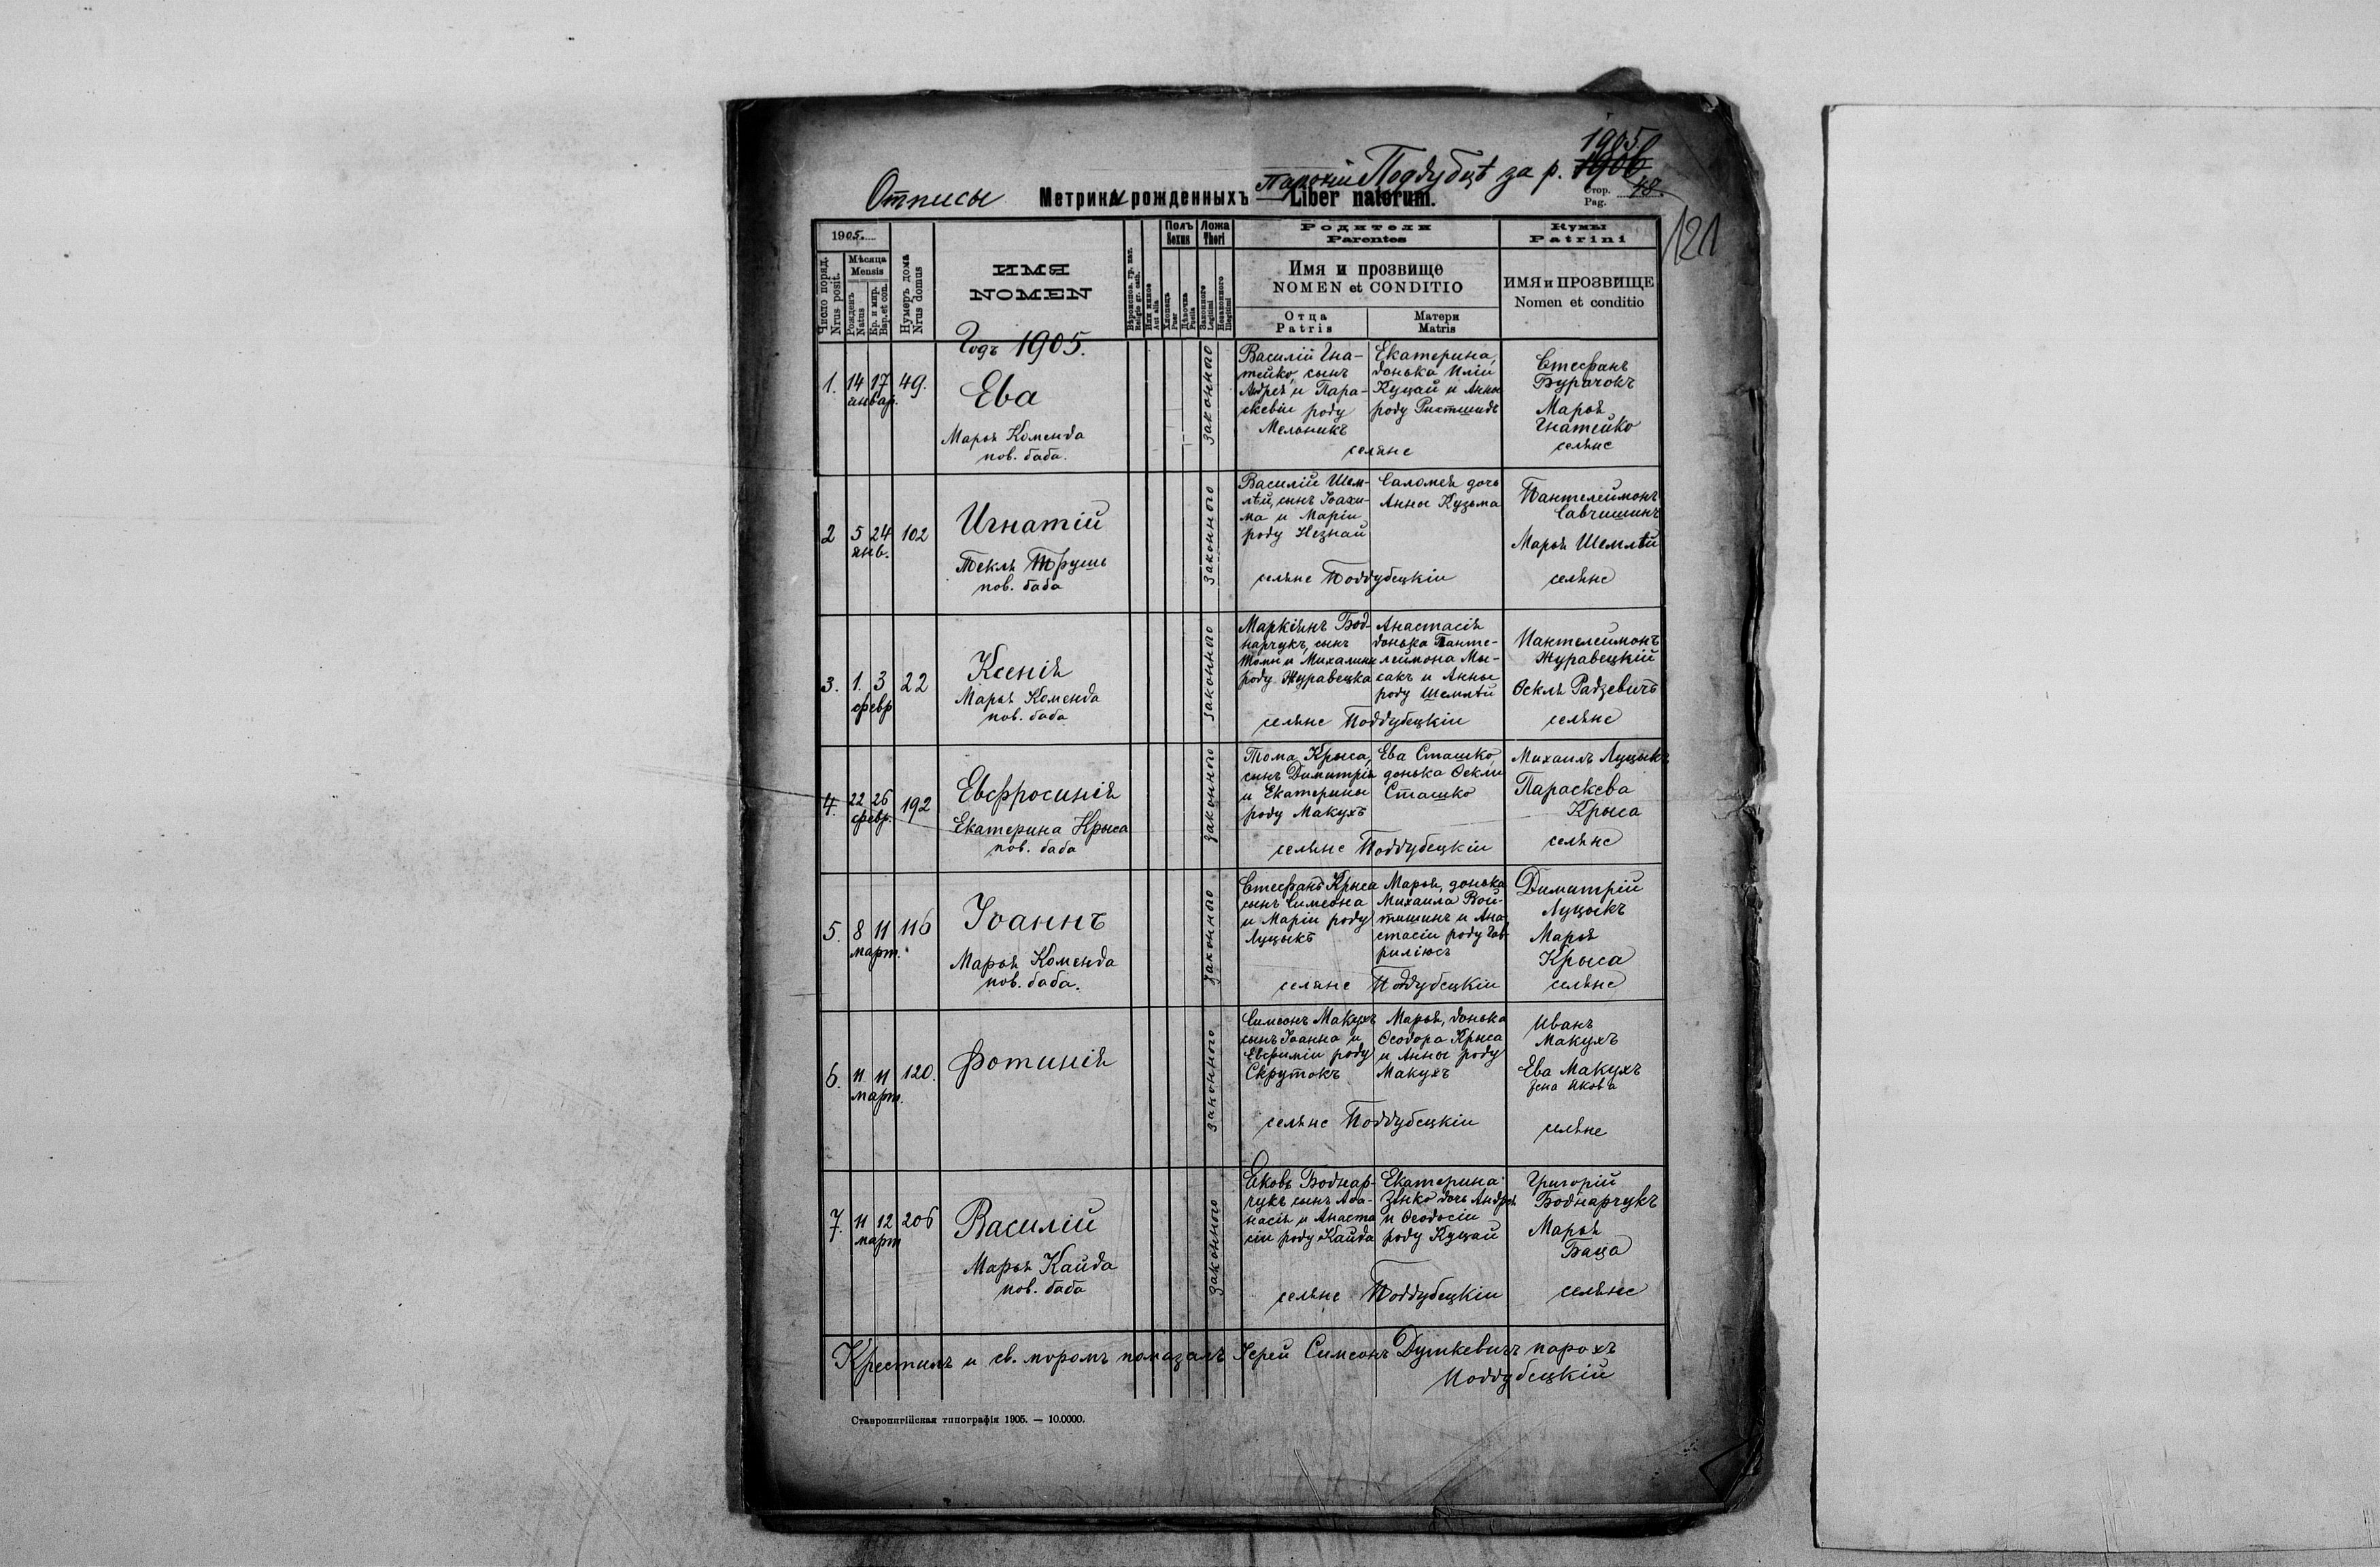 1905.
Отписы Метрики рожденныхъ Парохіи Поддубцѣ за р. 1906
Liber natorum.
Стор. Pag. 48.
121
1905.
Число поряд. Nrus posit.
Мѣсяца Mensis
Рожденъ Natus
Кр. и мир. Bap. et con.
Нумеръ дома Nrus domus
ИМЯ
NOMEN
Вѣроиспов. гр. кат. Religio gr. cath.
Или иное Aut alia
Полъ Sexus
Хлопець Puer
Дѣвочка Puella
Ложа Thori
Законного Legitimi
Незаконного Illegitimi
Родители
Parentes
Имя и прозвище
NOMEN et CONDITIO
Отца
Patris
Матери
Matris
Кумы
Patrini
ИМЯ и ПРОЗВИЩЕ
Nomen et conditio
Годъ 1905.
1. 14 17 49.
январ.
Ева
Марья Коменда
пов. баба.
законного
Василій Гна-
тейко, сынъ
Андрея и Пара-
скевіи роду
Мельникъ
Екатерина,
донька Иліи
Куцай и Анны
роду
селяне
Стефанъ
Бурачокъ
Марья
Гнатейко
селяне
2 5 24 102
янв.
Игнатій
Текля Трушь
пов. баба
законного
Василій Шем-
лѣй, сынъ Іоахи-
ма и Маріи
роду Незнай
Саломея дочь
Анны Кузьма
селяне Поддубецкіи
Пантелеймонъ
Савчишинъ
Марья Шемлѣй
селяне
3. 1. 3 22
февр
Ксенія
Марья Коменда
пов. баба
законного
Маркіянъ Бод-
нарчукъ, сынъ
Томы и Михалины
роду Журавецка
Анастасія
донька Панте-
леймона Мы-
сакъ и Анны
роду Шемлѣй
селяне Поддубецкіи
Пантелеймонъ
Журавецкій
Ѳекля Радзевичъ
селяне
4. 22 26 192
февр.
Евфросинія
Екатерина Крыса
пов. баба
законного
Тома Крыса,
сынъ Димитрія
и Екатерины
роду Макухъ
Ева Сташко,
донька Ѳекли
Сташко
селяне Поддубецкіи
Михаилъ Луцыкъ
Параскева
Крыса
селяне
5. 8 11 116
март.
Іоаннъ
Марья Коменда
пов. баба.
законного
Стефанъ Крыса
сынъ Симеона
и Маріи роду
Луцыкъ
Марья, донька
Михаила Вой-
тишинъ и Ана-
стасіи роду Гав-
рилюсъ
селяне Поддубецкіи
Димитрій
Луцыкъ
Марья
Крыса
селяне
6. 11 11 120.
март.
Фотинія
законного
Симеонъ Макухъ
сынъ Іоанна и
Евфиміи роду
Скрутокъ
Марья, донька
Ѳеодора Крыса
и Анны роду
Макухъ
селяне Поддубецкіи
Иванъ
Макухъ
Ева Макухъ
жена Якова
селяне
7. 11 12 206
март
Василій
Марья Кайда
пов. баба
законного
Яковъ Боднар-
чукъ сынъ Аѳа-
насія и Анаста
сіи роду Кайда
Екатерина
Зѣнко дочь Андрея
и Ѳеодосіи
роду Куцай
селяне Поддубецкіи
Григорій
Боднарчукъ
Марья
Баца
селяне
Крестилъ и св. мѵромъ помазалъ Іерей Симеонъ Дуткевичъ парохъ
Поддубецкій
Ставропигійская типографія 1905. — 10.0000.